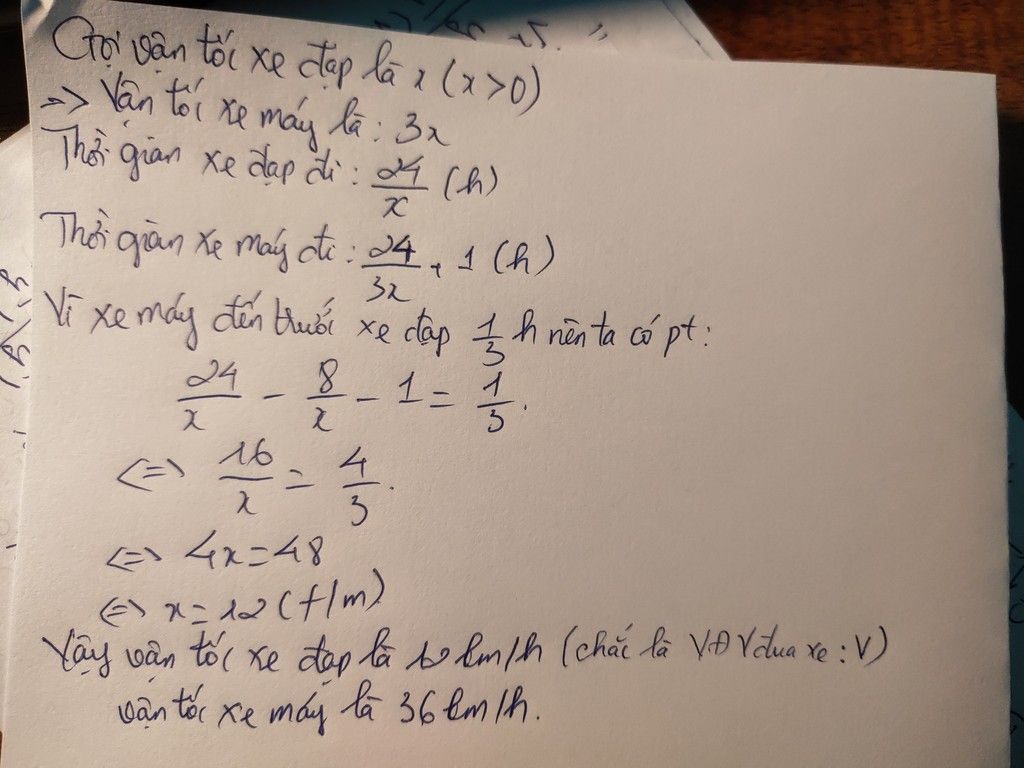 Gọi vận tốc xe đạp là x (x>0)
=> Vận tốc xe máy là: 3x
Thời gian xe đạp đi: 24/x (h)
Thời gian xe máy đi: 24/3x + 1 (h)
Vì xe máy đến trước xe đạp 1/3 h nên ta có pt:
24/x - 8/x - 1 = 1/3.
<=> 16/x = 4/3.
<=> 4x = 48
<=> x = 12 (t/m)
Vậy vận tốc xe đạp là 12 km/h (chắc là VĐV đua xe :V)
vận tốc xe máy là 36 km/h.